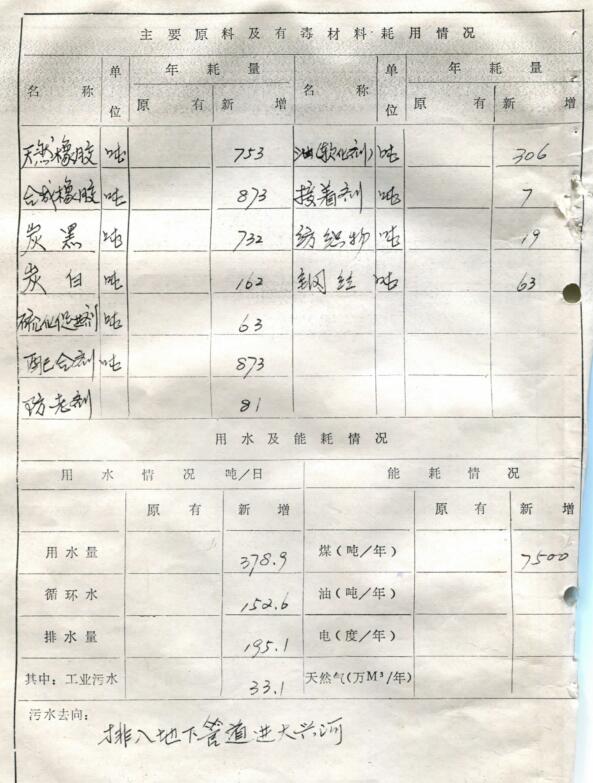 主要原料及有毒材料耗用情况
名称 单位 年耗量 名称 单位 年耗量
原有 新增 原有 新增
天然橡胶 吨 753 油(软化剂) 吨 306
合成橡胶 吨 873 接着剂 吨 7
炭黑 吨 732 纺织物 吨 19
炭白 吨 162 钢丝 吨 63
硫化促进剂 吨 63
配合剂 吨 873
防老剂 81
用水及能耗情况
用水情况 吨/日 能耗情况
原有 新增 原有 新增
用水量 378.9 煤(吨/年) 7500
循环水 152.6 油(吨/年)
排水量 195.1 电(度/年)
其中:工业污水 33.1 天然气(万M³/年)
污水去向:
排入地下管道进大兴河